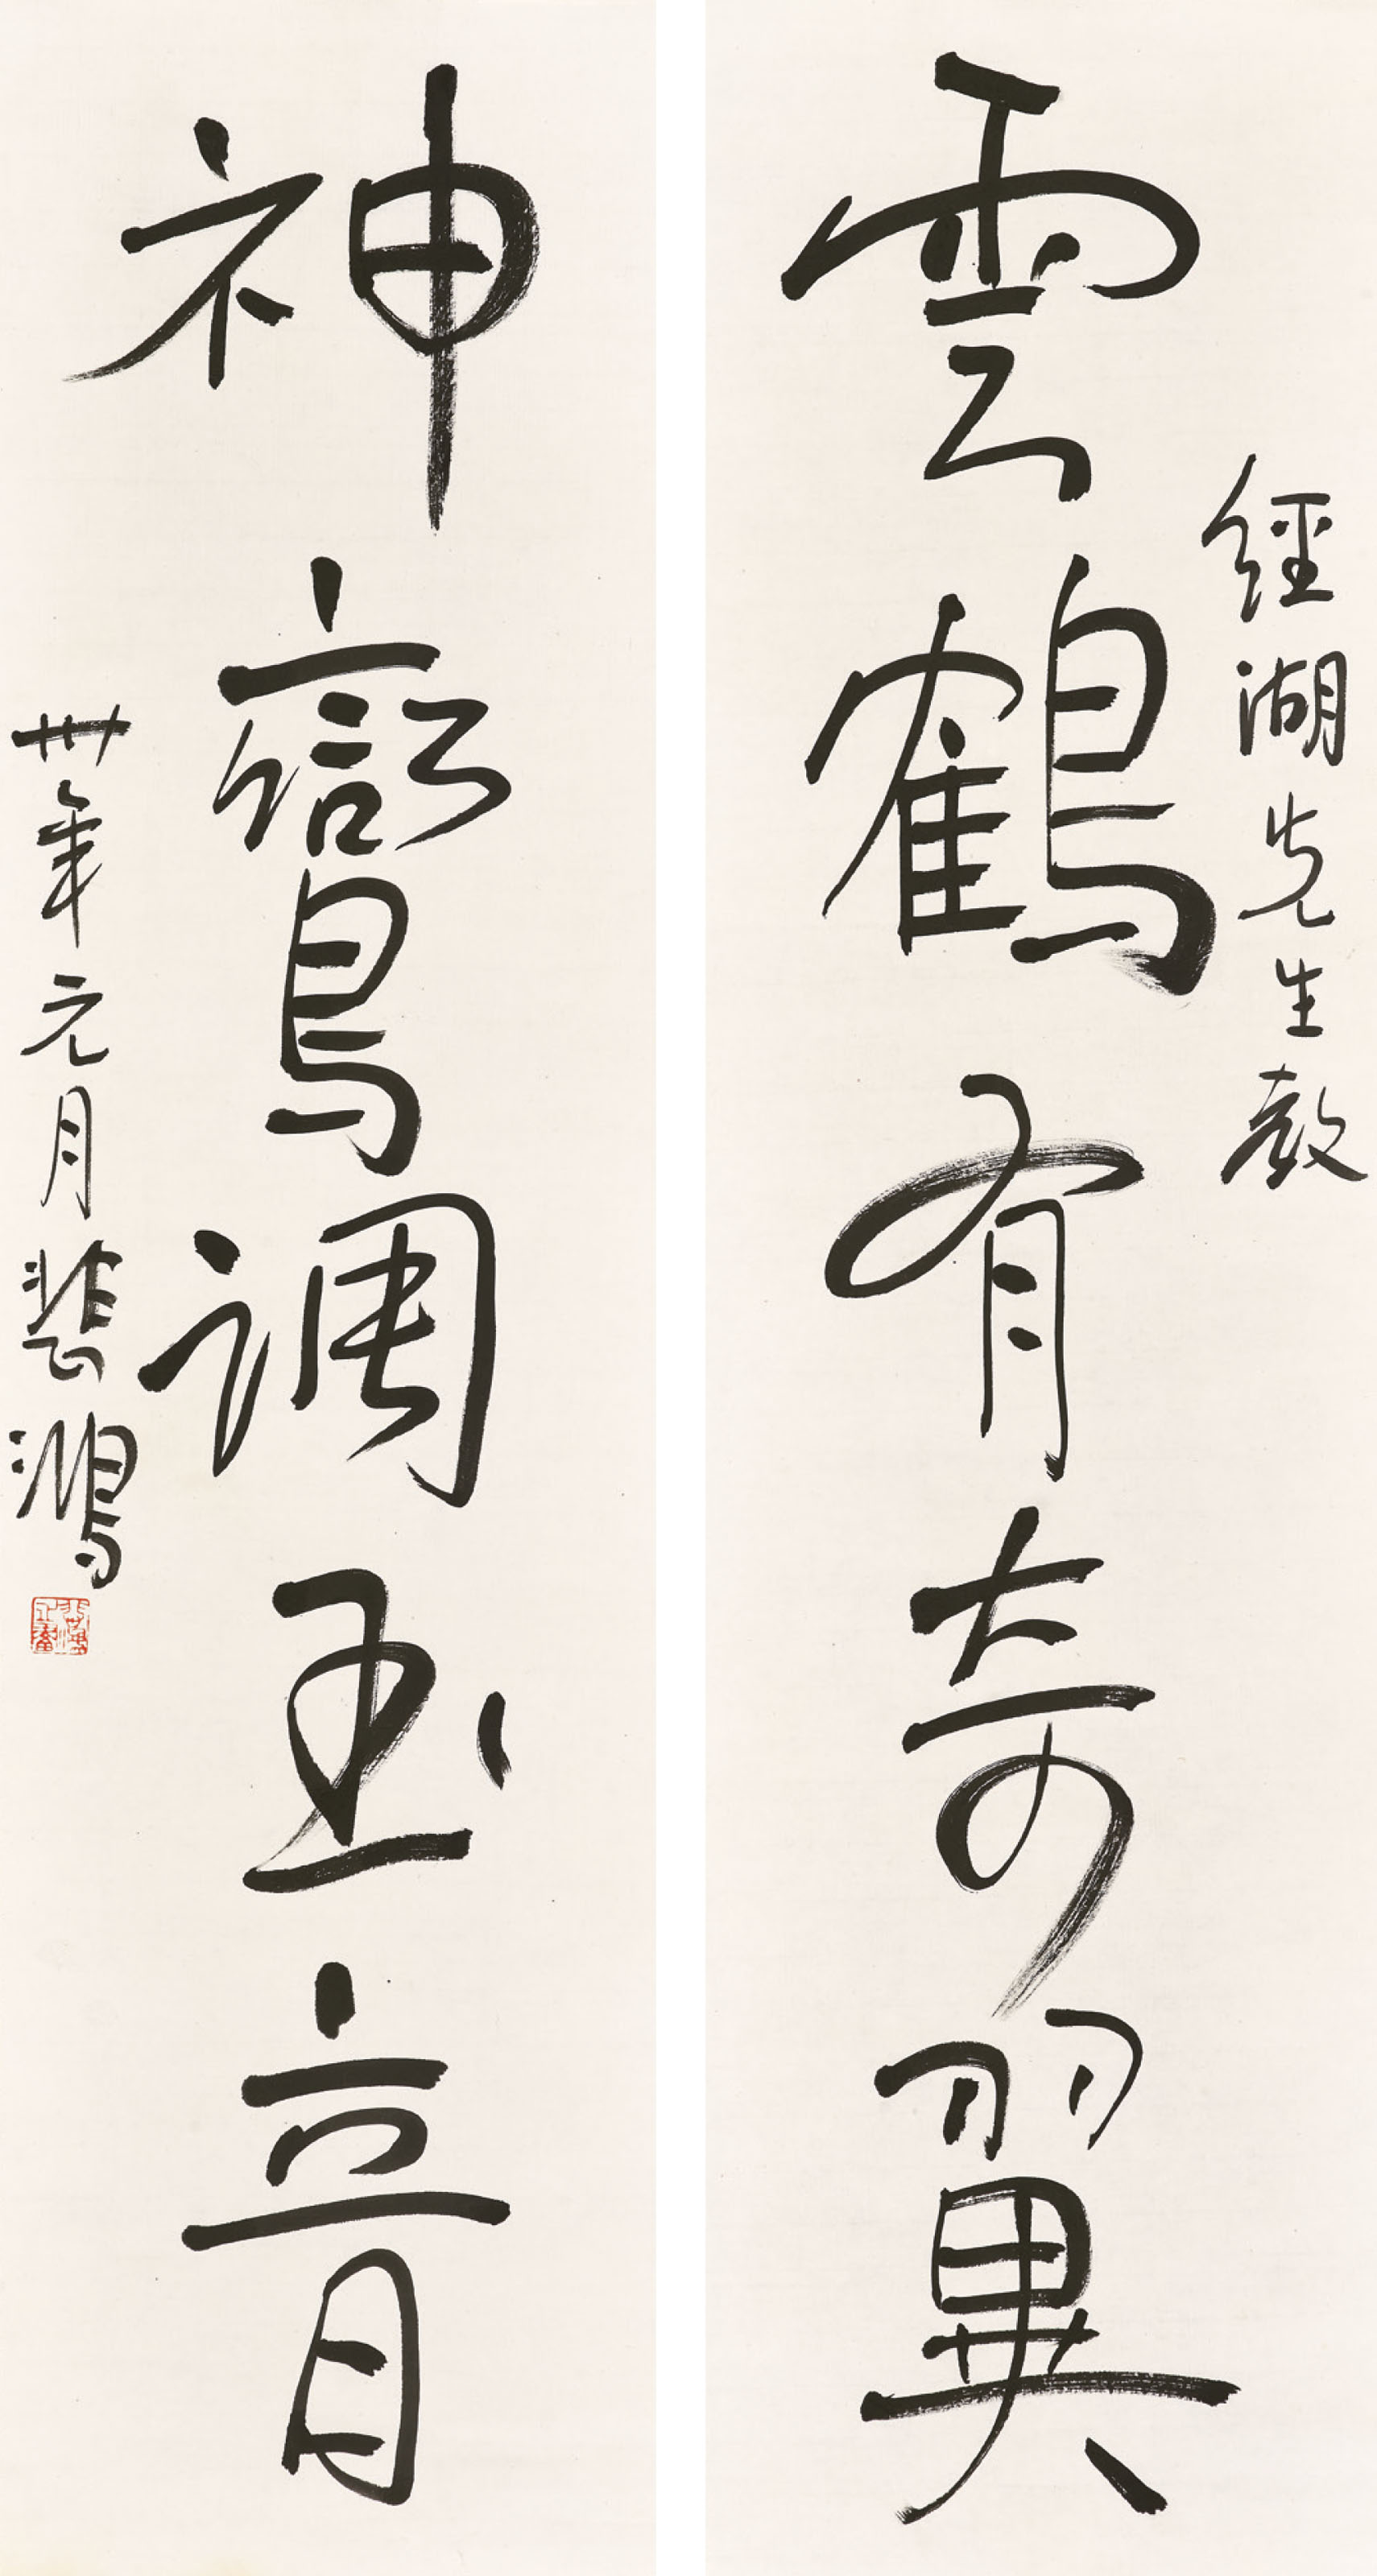 經湖先生教
雲鶴有奇翼
神鸞調玉音
卅年元月悲鴻